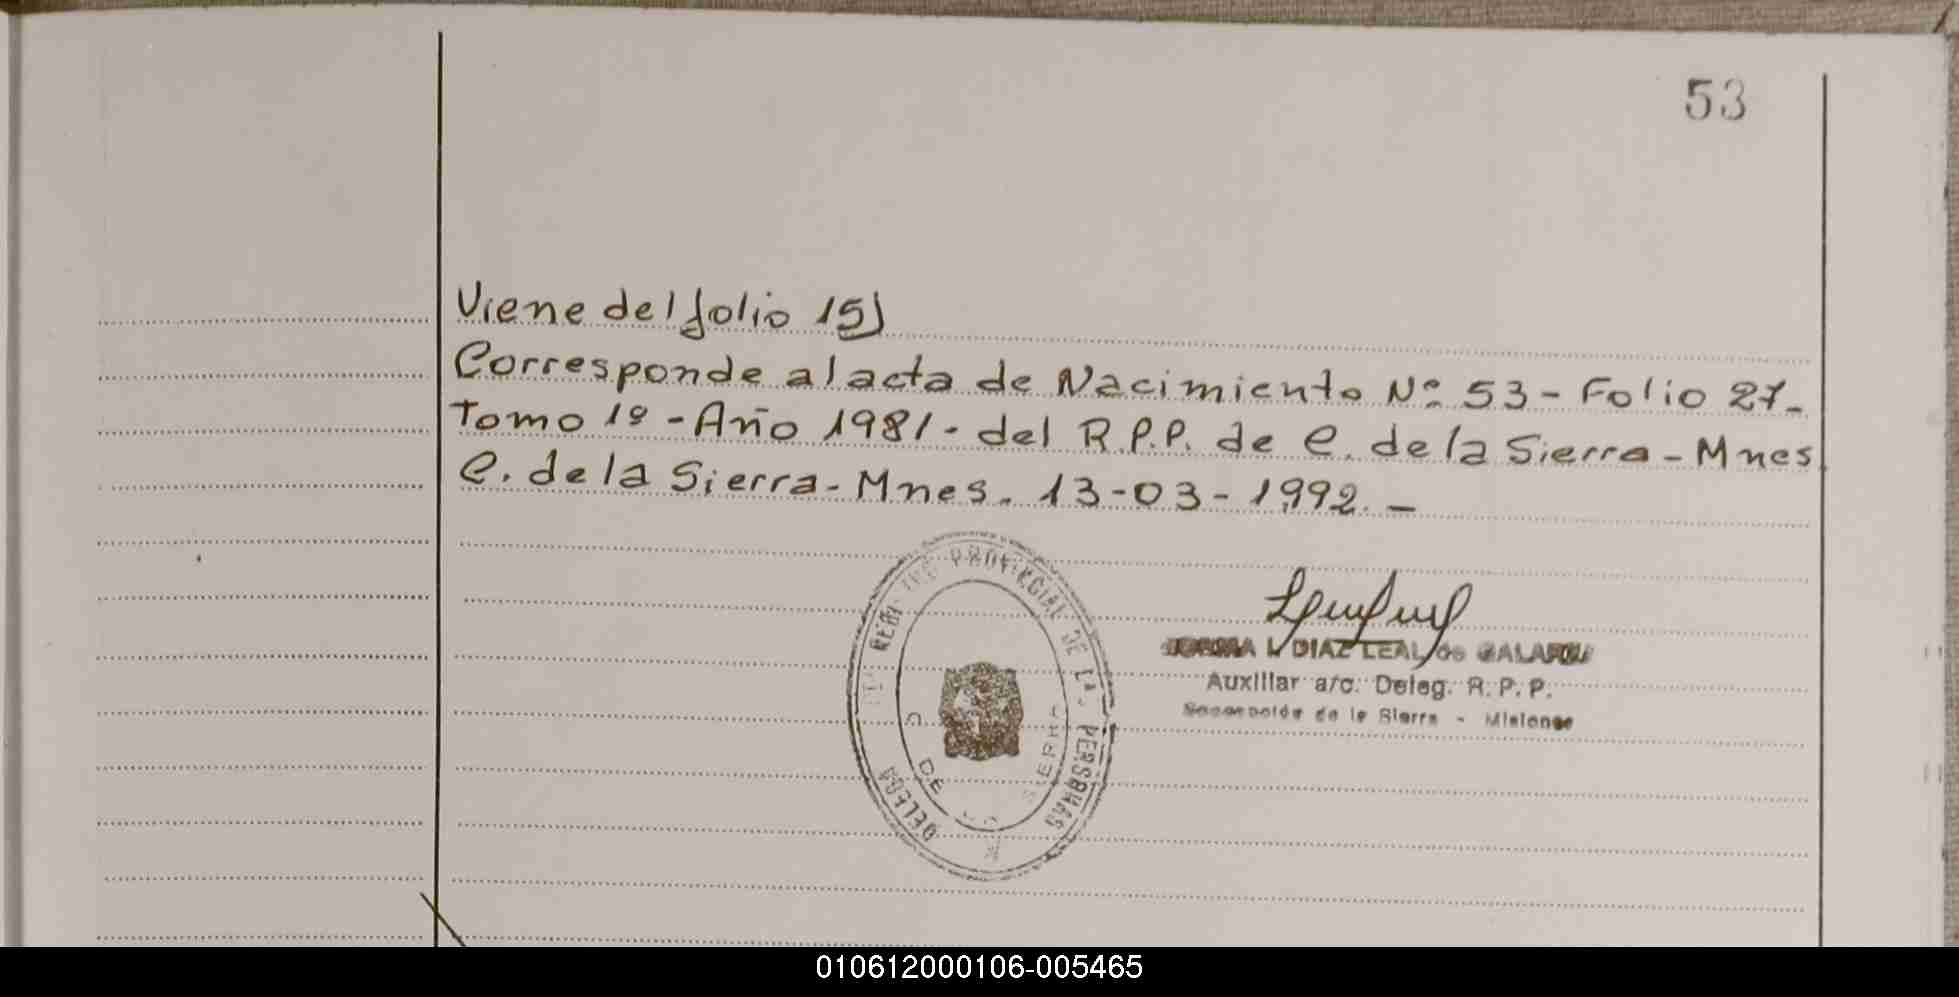 53
Viene del folio 15)
Corresponde al acta de Nacimiento Nº 53 - Folio 27-
Tomo 1º - Año 1981 - del R.P.P. de C. de la Sierra - Mnes.
C. de la Sierra - Mnes. 13-03-1992.-
PROVINCIAL DE LAS PERSONAS
DE
SIERRA
L. DIAZ LEAL de
Auxiliar a/c. Deleg. R. P. P.
de la Sierra - Misiones
010612000106-005465